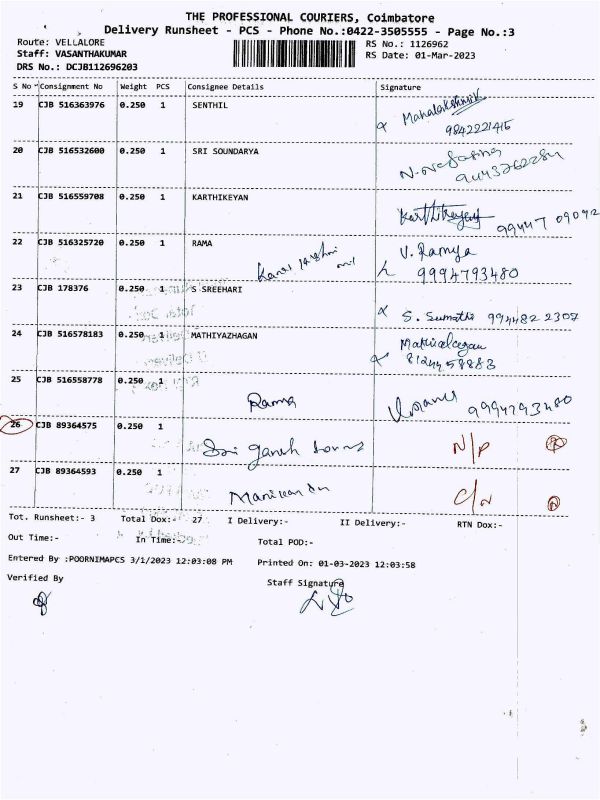 THE PROFESSIONAL COURIERS, Coimbatore
Delivery Runsheet - PCS - Phone No.:0422-3505555 - Page No.:3
Route: VELLALORE
RS No.: 1126962
Staff: VASANTHAKUMAR
RS Date: 01-Mar-2023
DRS No.: DCJB112696203
S No Consignment No Weight PCS Consignee Details Signature
19 CJB 516363976 0.250 1 SENTHIL
9842221415
20 CJB 516532600 0.250 1 SRI SOUNDARYA
9443762284
21 CJB 516559708 0.250 1 KARTHIKEYAN
Karthikeyan 99447 09092
22 CJB 516325720 0.250 1 RAMA V. Ramya
9994793480
23 CJB 178376 0.250 1 S SREEHARI
S. Sumathi 9944822 2307
24 CJB 516578183 0.250 1 MATHIYAZHAGAN Mathiyalagan
8124458883
25 CJB 516558778 0.250 1
Rama 9994793480
26 CJB 89364575 0.250 1
Sri Ganesh N/P
27 CJB 89364593 0.250 1
Manikandan C/N
Tot. Runsheet:- 3 Total Dox:- 27 I Delivery:- II Delivery:- RTN Dox:-
Out Time:- In Time:- Total POD:-
Entered By :POORNIMAPCS 3/1/2023 12:03:08 PM Printed On: 01-03-2023 12:03:58
Verified By Staff Signature